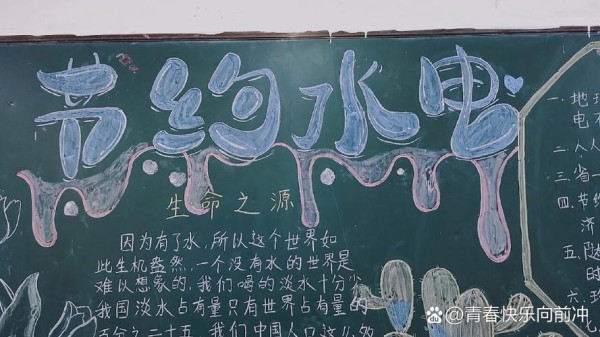 节约水电
生命之源
因为有了水，所以这个世界如
此生机盎然，一个没有水的世界是
难以想象的，我们喝的淡水十分少
我国淡水占有量只有世界占有量的
百分之二十五，我们中国人口这么多
一.地
电不
二.人人
三.省一
四.节约
济
五.随
时
六.
七.
@青春快乐向前冲